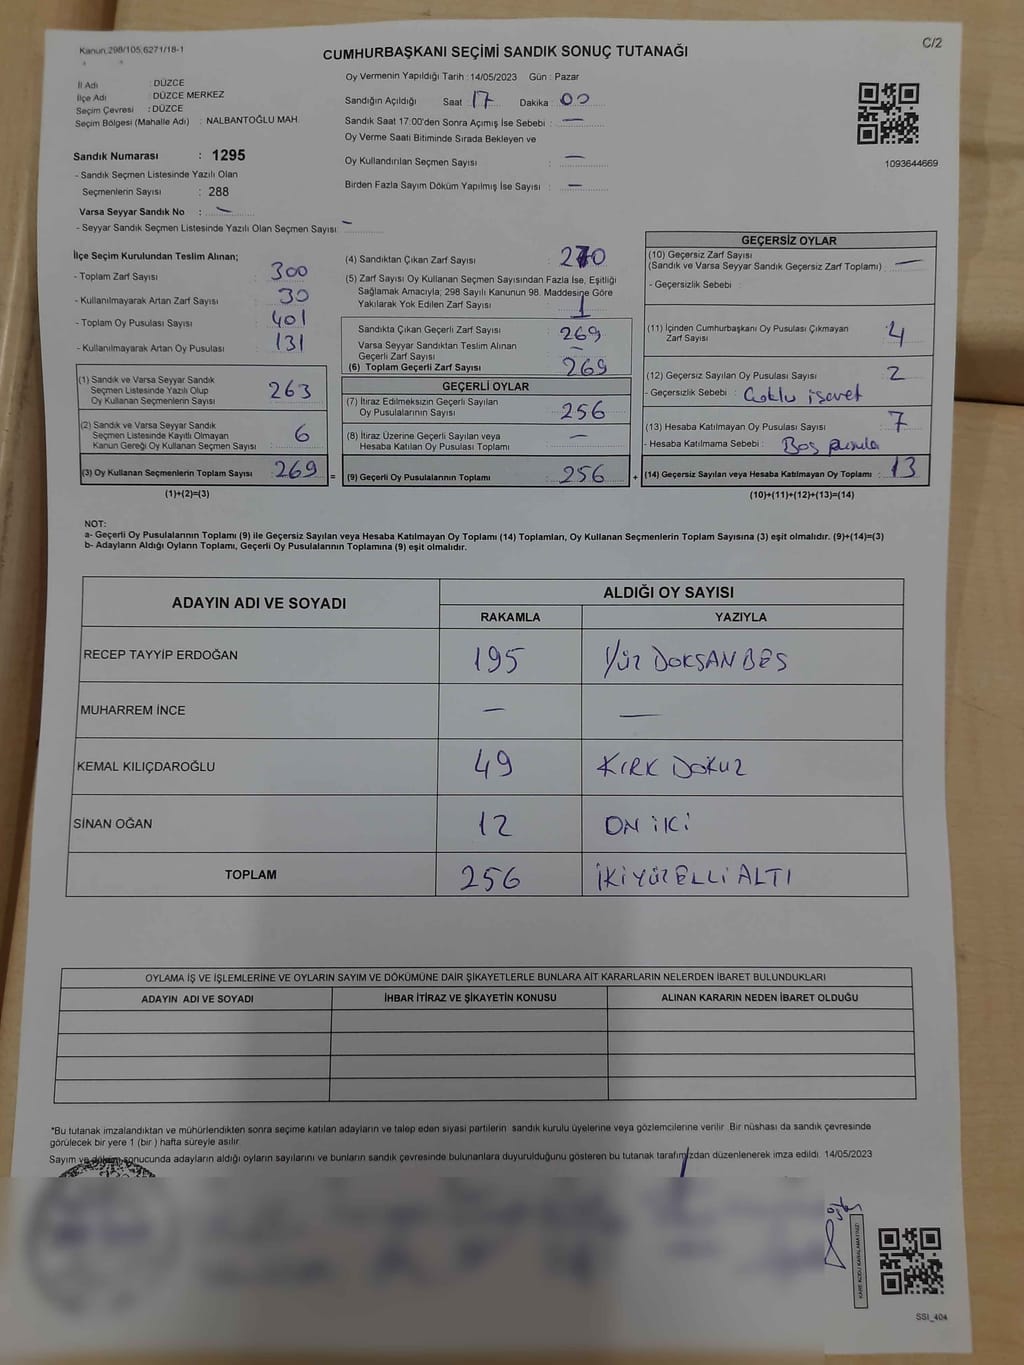 Kanun,298/105,6271/18-1
C/2
CUMHURBAŞKANI SEÇİMİ SANDIK SONUÇ TUTANAĞI
İl Adı : DÜZCE
İlçe Adı : DÜZCE MERKEZ
Seçim Çevresi : DÜZCE
Seçim Bölgesi (Mahalle Adı) : NALBANTOĞLU MAH.
Sandık Numarası : 1295
- Sandık Seçmen Listesinde Yazılı Olan
Seçmenlerin Sayısı : 288
Varsa Seyyar Sandık No : —
- Seyyar Sandık Seçmen Listesinde Yazılı Olan Seçmen Sayısı: —
Oy Vermenin Yapıldığı Tarih : 14/05/2023 Gün : Pazar
Sandığın Açıldığı Saat 17 Dakika 00
Sandık Saat 17:00'den Sonra Açımış İse Sebebi : —
Oy Verme Saati Bitiminde Sırada Bekleyen ve
Oy Kullandırılan Seçmen Sayısı : —
Birden Fazla Sayım Döküm Yapılmış İse Sayısı : —
1093644669
İlçe Seçim Kurulundan Teslim Alınan;
- Toplam Zarf Sayısı 300
- Kullanılmayarak Artan Zarf Sayısı 30
- Toplam Oy Pusulası Sayısı 401
- Kullanılmayarak Artan Oy Pusulası 131
(1) Sandık ve Varsa Seyyar Sandık
Seçmen Listesinde Yazılı Olup
Oy Kullanan Seçmenlerin Sayısı 263
(2) Sandık ve Varsa Seyyar Sandık
Seçmen Listesinde Kayıtlı Olmayan
Kanun Gereği Oy Kullanan Seçmen Sayısı 6
(3) Oy Kullanan Seçmenlerin Toplam Sayısı 269 =
(1)+(2)=(3)
(4) Sandıktan Çıkan Zarf Sayısı : 270
(5) Zarf Sayısı Oy Kullanan Seçmen Sayısından Fazla İse, Eşitliği
Sağlamak Amacıyla; 298 Sayılı Kanunun 98. Maddesine Göre
Yakılarak Yok Edilen Zarf Sayısı 1
Sandıkta Çıkan Geçerli Zarf Sayısı 269
Varsa Seyyar Sandıktan Teslim Alınan
Geçerli Zarf Sayısı —
(6) Toplam Geçerli Zarf Sayısı 269
GEÇERLİ OYLAR
(7) İtiraz Edilmeksizin Geçerli Sayılan
Oy Pusulalarının Sayısı 256
(8) İtiraz Üzerine Geçerli Sayılan veya
Hesaba Katılan Oy Pusulası Toplamı —
(9) Geçerli Oy Pusulalarının Toplamı 256 +
GEÇERSİZ OYLAR
(10) Geçersiz Zarf Sayısı
(Sandık ve Varsa Seyyar Sandık Geçersiz Zarf Toplamı) : —
- Geçersizlik Sebebi :
(11) İçinden Cumhurbaşkanı Oy Pusulası Çıkmayan
Zarf Sayısı : 4
(12) Geçersiz Sayılan Oy Pusulası Sayısı : 2
- Geçersizlik Sebebi : Çoklu işaret
(13) Hesaba Katılmayan Oy Pusulası Sayısı : 7
- Hesaba Katılmama Sebebi : Boş pusula
(14) Geçersiz Sayılan veya Hesaba Katılmayan Oy Toplamı : 13
(10)+(11)+(12)+(13)=(14)
NOT:
a- Geçerli Oy Pusulalarının Toplamı (9) ile Geçersiz Sayılan veya Hesaba Katılmayan Oy Toplamı (14) Toplamları, Oy Kullanan Seçmenlerin Toplam Sayısına (3) eşit olmalıdır. (9)+(14)=(3)
b- Adayların Aldığı Oyların Toplamı, Geçerli Oy Pusulalarının Toplamına (9) eşit olmalıdır.
ADAYIN ADI VE SOYADI ALDIĞI OY SAYISI
RAKAMLA YAZIYLA
RECEP TAYYİP ERDOĞAN 195 YÜZ DOKSAN BEŞ
MUHARREM İNCE — —
KEMAL KILIÇDAROĞLU 49 KIRK DOKUZ
SİNAN OĞAN 12 ON İKİ
TOPLAM 256 İKİ YÜZ ELLİ ALTI
OYLAMA İŞ VE İŞLEMLERİNE VE OYLARIN SAYIM VE DÖKÜMÜNE DAİR ŞİKAYETLERLE BUNLARA AİT KARARLARIN NELERDEN İBARET BULUNDUKLARI
ADAYIN ADI VE SOYADI İHBAR İTİRAZ VE ŞİKAYETİN KONUSU ALINAN KARARIN NEDEN İBARET OLDUĞU
*Bu tutanak imzalandıktan ve mühürlendikten sonra seçime katılan adayların ve talep eden siyasi partilerin sandık kurulu üyelerine veya gözlemcilerine verilir. Bir nüshası da sandık çevresinde
görülecek bir yere 1 (bir ) hafta süreyle asılır.
Sayım ve döküm sonucunda adayların aldığı oyların sayılarını ve bunların sandık çevresinde bulunanlara duyurulduğunu gösteren bu tutanak tarafımızdan düzenlenerek imza edildi. 14/05/2023
KARE KODU KARALAMAYINIZ!
SSI_404